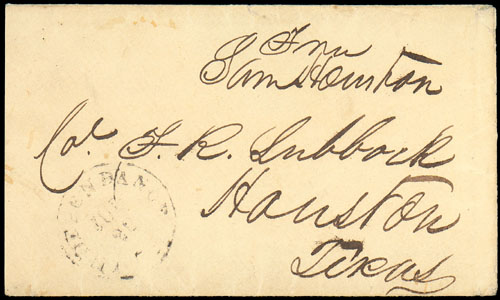 Free
Sam Houston
Col. F. R. Lubbock
Houston
Texas
INDEPENDANCE